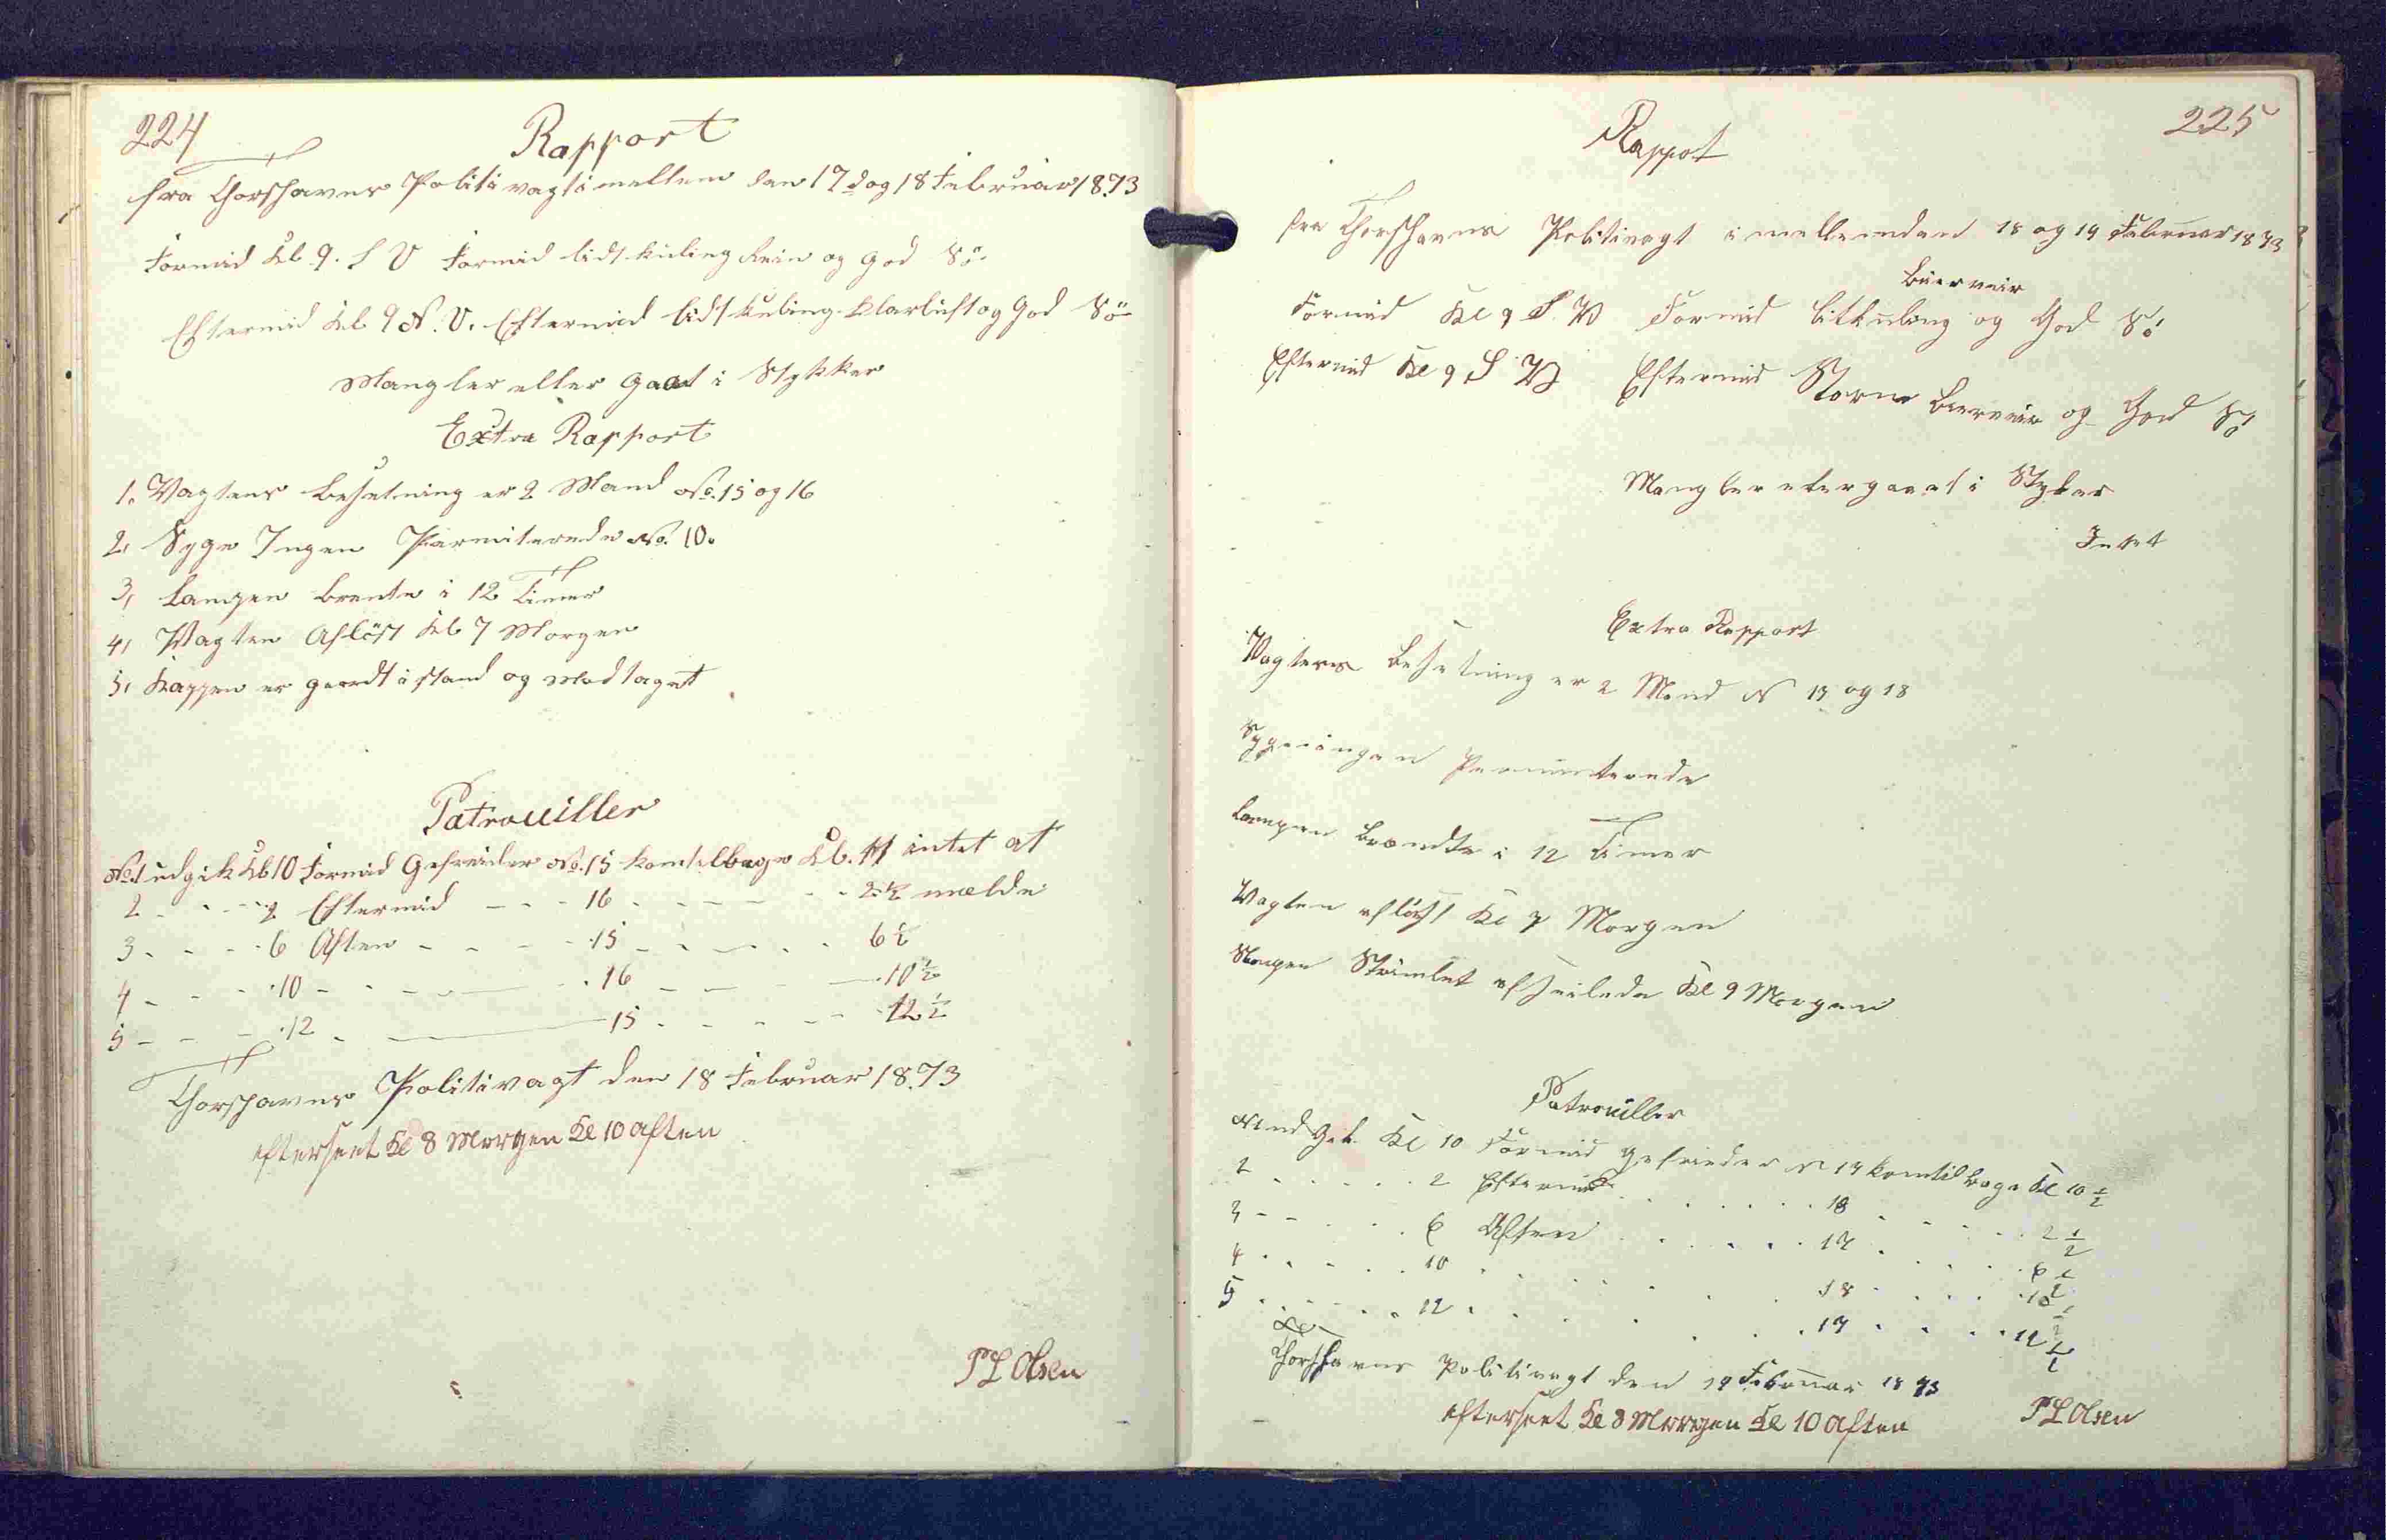 224
Rapport
fra Thorshavns Politivagt imellem den 17 og 18 Februar 1873
Formid Kl. 9. S V Formid lidt kuling Rein og god Sö
Eftermid Kl 9 N. V. Eftermid lidt Kuling Klarluft og God Sö
Mangler eller gaaet i Stykker
Extra Rapport
1. Vagtens besetning er 2 Mand No. 15 og 16
2, Syge Ingen Permiterede No. 10.
3, Lampen brente i 12 Timer
4, Vagten Aflöst Kl 7 Morgen
5, Kappen er gaardt i stand og Modtaget
Patrouiller
No. 1 udgik Kl 10 Formid Gefreider No. 15 kom tilbage Kl. 11 intet at
2 - - - - 2 Eftermid - - - 16 - - - - - 2 1/2 melde
3 - - - - 6 Aften - - - - 15 - - - - - 6 1/2
4 - - - - 10 - - - - 16 - - - - 10 1/2
5 - - - 12 - - 15 - - - - - 12 1/2
Thorshavns Politivagt den 18 Februar 1873
efterseet Kl 8 Morgen Kl 10 Aften
P L Olsen
225
Rappot
fra Thorshavns Politivagt i mellem den 18 og 19 Februar 1873
Formid Kl 9 S. V Formid litkuling og God Sö
Eftermid Kl 9 S V Eftermid Storm og God Sö
Mangler eler gaaet i Styker
Intet
Extra Rapport
Vagtens Besetning er 2 Mand N 17 og 18
Syge ingen Permiterede
Lampen Brendte i 12 Timer
Vagten aflöst Kl 7 Morgen
afseilede Kl 9 Morgen
Patrouiller
N 1 ud Gik Kl 10 Formid gefreider N 17 kom tilbage Kl 10 1/2
2 . . . . . 2 Eftermid . . . . . 18 . . . . . 2 1/2
3 - - . . . 6 Aften . . . . . 17 . . . . . 6 1/2
4 . . . . . 10 . . . . . 18 . . . . . 10 1/2
5 . . . . . 12 . . . . . 17 . . . . . 12 1/2
Thorshavns Politivagt den 19 Februar 1873
efterseet Kl 8 Morgen Kl 10 Aften
P L Olsen